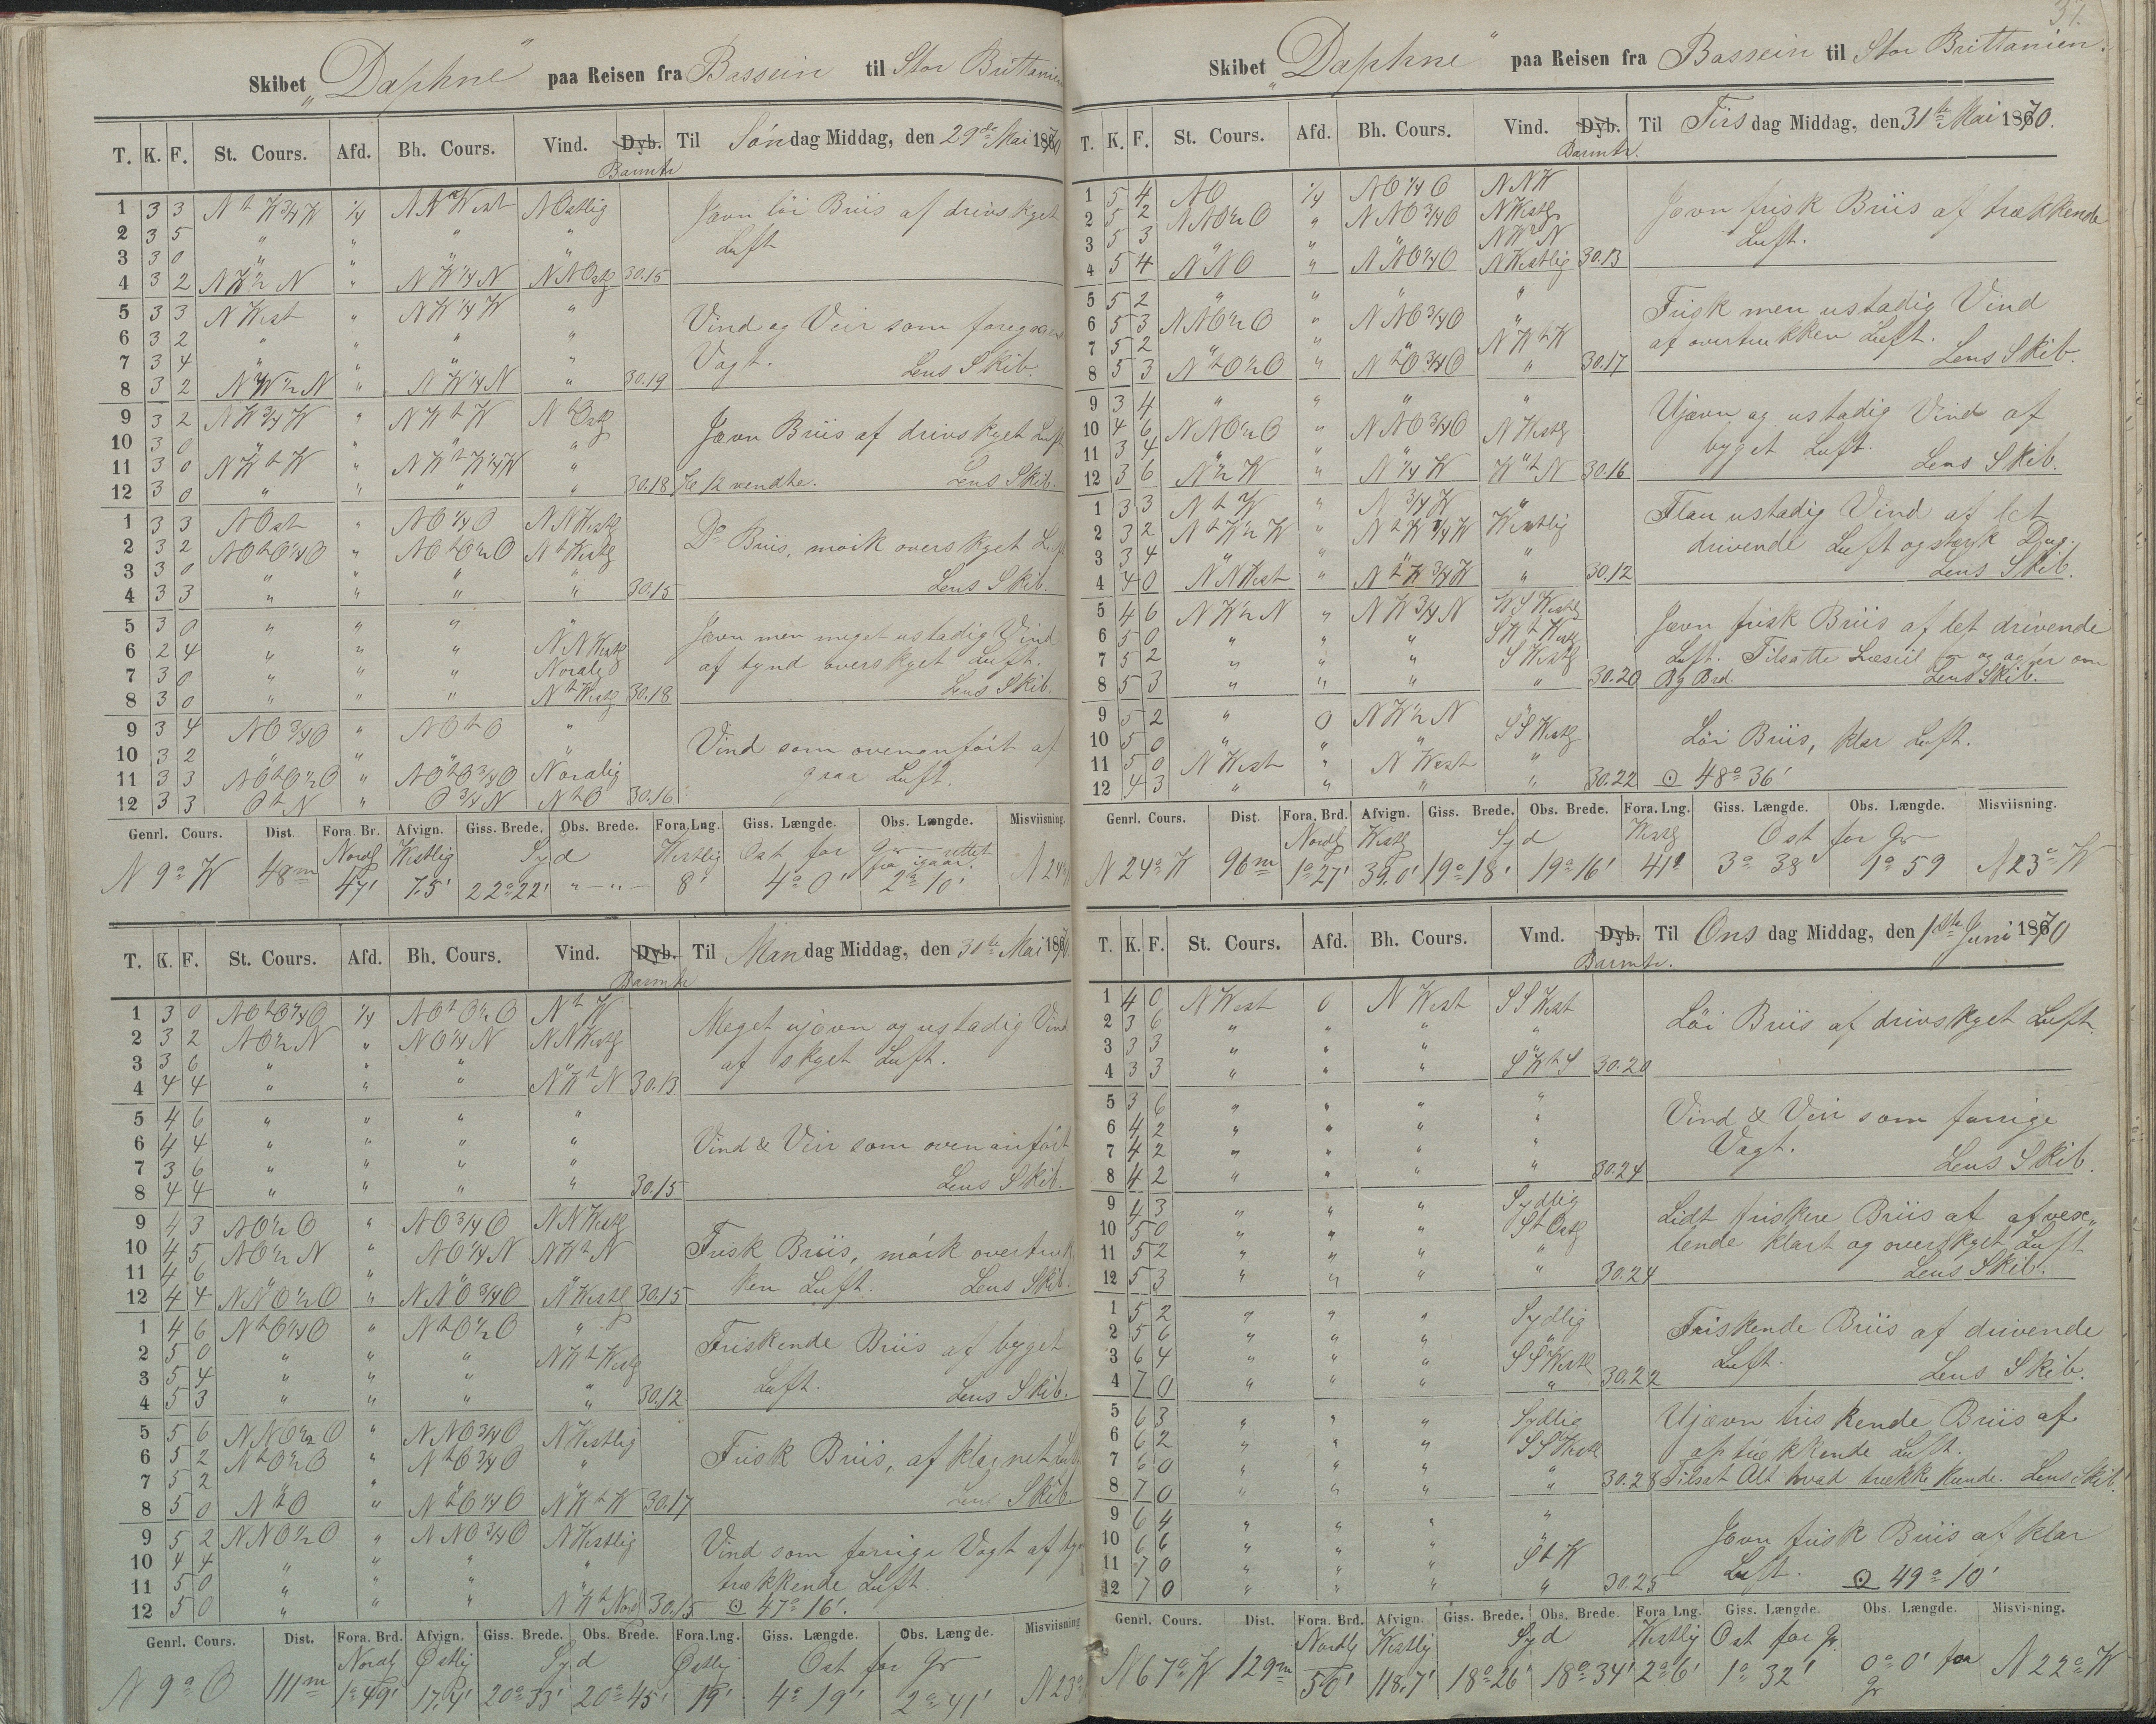 Skibet „Daphne" paa Reisen fra Bassein til Stor Brittanien
T. K. F. St. Cours. Afd. Bh. Cours. Vind. Dyb. Til Søndag Middag, den 29de Mai 1870
Barmtr
1 3 3 N t W 3/4 W 1/4 N N West N Ostlig Jevn löi Briis af drivskyet
2 3 5 " " " " Luft
3 3 0 " " "
4 3 2 N W 1/2 N " N W 1/4 N N N Ostlg 30.15
5 3 3 N West " N W 1/4 W " Vind og Veir som foregaaende
6 3 2 " " " "
7 3 4 " " " " Vagt. Lens Skib.
8 3 2 N W 1/2 N " N W 1/4 N " 30.19
9 3 2 N W 3/4 W " N W t W N t Ostlg Jevn Briis af drivskyet Luft
10 3 0 " " " "
11 3 0 N W t W " N W t W 1/4 W "
12 3 0 " " " " 30.18 Kl 12 vendte. Lens Skib.
1 3 3 N Ost " N O 1/4 O N N Westlg
2 3 2 N O t O 1/4 O " N O t O 1/2 O N t Westlg Do Briis, mörk overskyet Luft
3 3 0 " " " "
4 3 3 " " " " 30.15 Lens Skib.
5 3 0 " " " " Jevn men meget ustadig Vind
6 2 4 " " " N N Westlg af tynd overskyet Luft.
7 3 0 " " " Nordlg
8 3 0 " " " N t Westlg 30.18 Lens Skib.
9 3 4 N O 3/4 O " N O t O " Vind som ovenanfört af
10 3 2 " " " "
11 3 3 N O t O 1/2 O " N O t O 3/4 O Nordlig graa Luft.
12 3 3 O t N " O 3/4 N N t O 30.16
Genrl. Cours. Dist. Fora. Br. Afvign. Giss. Brede. Obs. Brede. Fora. Lng. Giss. Længde. Obs. Længde. Misviisning.
Nordlg Westlig Syd Westlig Ost for Gr rettet fra igaar
N 9° W 48m 47' 7.5' 22° 22' " — " — 8' 4° 0' 2° 10' N 24°
T. K. F. St. Cours. Afd. Bh. Cours. Vind. Dyb. Til Mandag Middag, den 30te Mai 1870
Barmtr
1 3 0 N O t O 1/4 O 1/4 N O t O 1/2 O N t W Meget ujevn og ustadig Vind
2 3 2 N O 1/2 N " N O 1/4 N N N Westlg
3 3 6 " " " " af skyet Luft.
4 4 4 " " " N W t N 30.13
5 4 6 " " " "
6 4 4 " " " " Vind & Veir som ovenanfört
7 3 6 " " " "
8 4 4 " " " " 30.15 Lens Skib.
9 4 3 N O 1/2 O " N O 3/4 O N N Westlg
10 4 5 N O 1/2 N " N O 1/4 N N W t N Frisk Briis, mörk overtruk
11 4 6 " " " "
12 4 4 N N O 1/2 O " N N O 3/4 O N Westlg 30.15 ken Luft. Lens Skib.
1 4 6 N t O 1/4 O " N t O 1/2 O " Friskende Briis af byget
2 5 0 " " " N W t Westlg
3 5 4 " " " " Luft.
4 5 3 " " " " 30.12 Lens Skib.
5 5 6 N N O 1/2 O " N N O 3/4 O N Westlig
6 5 2 N t O 1/2 O " N t O 3/4 O " Frisk Briis, af klarnet Luft
7 5 2 " " "
8 5 0 N t O " N t O 1/4 O N W t W 30.17 Lens Skib
9 5 2 N N O 1/2 O " N N O 3/4 O N Westlig Vind som forrige Vagt af
10 4 4 " " " "
11 5 0 " " " " trækkende Luft.
12 5 0 " " " N W t Nordl 30.15 ☉ 47° 16'.
Genrl. Cours. Dist. Fora. Brd. Afvign. Giss. Brede. Obs. Brede. Fora. Lng. Giss. Længde. Obs. Længde. Misviisning
Nordlg Østlig Syd Østlig Ost for Gr
N 9° O 111m 1° 49' 17,4' 20° 33' 20° 45' 19' 4° 19' 2° 41' N 23°
37.
Skibet „Daphne" paa Reisen fra Bassein til Stor Brittanien.
T. K. F. St. Cours. Afd. Bh. Cours. Vind. Dyb. Til Tirsdag Middag, den 31te Mai 1870.
Barmtr.
1 5 4 N O 1/4 N O 1/4 O N N W Jevn frisk Briis af trækkende
2 5 2 N N O 1/2 O " N N O 3/4 O N Westlg
3 5 3 " " " N W 1/2 N Luft.
4 5 4 N N O " N N O 1/4 O N Westlig 30.13
5 5 2 " " " " Frisk men ustadig Vind
6 5 3 N N O 1/2 O " N N O 3/4 O "
7 5 2 " " " N W t W af overtrukken Luft.
8 5 3 N t O 1/2 O " N t O 3/4 O " 30.17 Lens Skib.
9 3 4 " " " " Ujævn og ustadig Vind af
10 4 6 N N O 1/2 O " N N O 3/4 O N Westlg
11 3 4 " " " " byget Luft.
12 3 6 N 1/2 W " N 1/4 W W t N 30.16 Lens Skib.
1 3 3 N t W " N 3/4 W " Flau ustadig Vind af let
2 3 2 N t W 1/2 W " N t W 1/4 W Westlig
3 3 4 " " " " drivende Luft og stærk Dug.
4 4 0 N N West " N t W 3/4 W " 30.12 Lens Skib.
5 4 6 N W 1/2 N " N W 3/4 N W S Westlg Jevn frisk Briis af let drivende
6 5 0 " " " S W t Westlg
7 5 2 " " " S Westlg Luft. Tilsatte Læseil for og agter om
8 5 3 " " " " 30.20 Bg Brd. Lens Skib.
9 5 2 " 0 N W 1/2 N S S Westlg Löi Briis, klar Luft.
10 5 0 " " " "
11 5 0 N West " N West "
12 4 3 " " " " 30.22 ☉ 48° 36'
Genrl. Cours. Dist. Fora. Brd. Afvign. Giss. Brede. Obs. Brede. Fora. Lng. Giss. Længde. Obs. Længde. Misviisning.
Nordlg Westlg Syd Westlg Ost for Gr
N 24° W 96m 1° 27' 39.0' 19° 18' 19° 16' 41' 3° 38' 1° 59 N 23° W
T. K. F. St. Cours. Afd. Bh. Cours. Vind. Dyb. Til Onsdag Middag, den 1ste Juni 1870
Barmtr.
1 4 0 N West 0 N West S S West Löi Briis af drivskyet Luft.
2 3 6 " " " "
3 3 3 " " " "
4 3 3 " " " S W t S 30.20
5 3 6 " " " " Vind & Veir som forrige
6 4 2 " " " "
7 4 2 " " " " Vagt.
8 4 2 " " " " 30.24 Lens Skib.
9 4 3 " " " Sydlig Lidt friskere Briis af afvex„
10 5 0 " " " S t Ostlg
11 5 2 " " " " lende klart og overskyet Luft
12 5 3 " " " " 30.24 Lens Skib.
1 5 2 " " " Sydlig Friskende Briis af drivende
2 5 6 " " " "
3 6 4 " " " S S Westl Luft.
4 7 0 " " " " 30.22 Lens Skib.
5 6 3 " " " Sydlig Ujævn friskende Briis af
6 6 2 " " " S S Westl optrækkende Luft.
7 6 0 " " " "
8 7 0 " " " " 30.28 Tilsat Alt hvad trække kunde. Lens Skib.
9 6 4 " " " " Jevn frisk Briis af klar
10 6 6 " " " "
11 7 0 " " " S t W Luft. ☉ 49° 10'
12 7 0 " " " " 30.25
Genrl. Cours. Dist. Fora. Brd. Afvign. Giss. Brede. Obs. Brede. Fora Lng. Giss. Længde. Obs. Længde. Misvisning.
Nordlg Westlig Syd Westlig Ost for Gr.
N 67° W 129m 50' 118.7' 18° 26' 18° 34' 2° 6' 1° 32' 0° 0' for Gr N 22° W